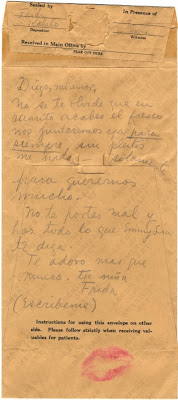 Sealed by
In Presence of
Depositor
Witness
Received in Main Office by
Diego, mi amor,
No se te olvide que en
cuanto acabes el fresco
nos juntaremos ya para
siempre, sin pleitos
ni nada, solamente
para querernos
mucho.
No te portes mal y
haz todo lo que Emmy Lou
te diga.
Te adoro mas que
nunca. tu niña
Frida
(Escribeme)
Instructions for using this envelope on other
side. Please follow strictly when receiving val-
uables for patients.